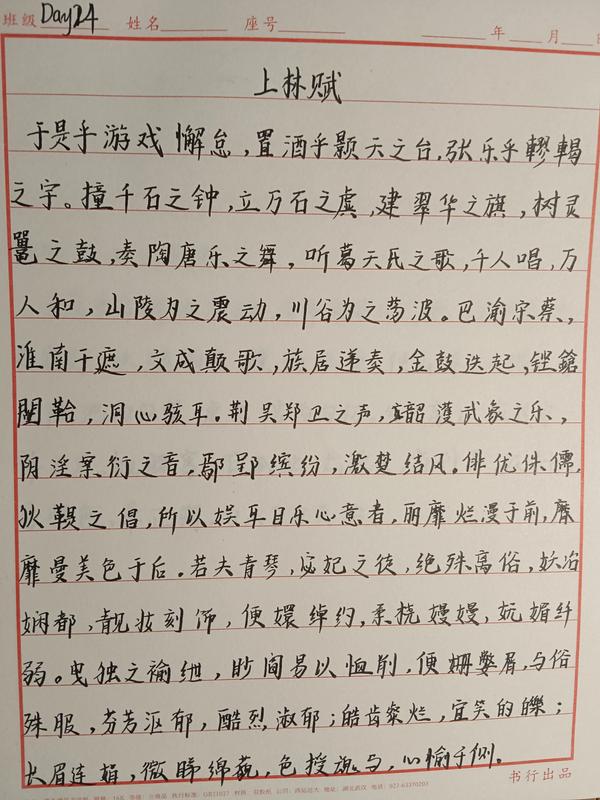 班级 Day24 姓名 座号 年 月 日
上林赋
于是乎游戏懈怠,置酒乎颢天之台,张乐乎轇輵
之宇。撞千石之钟,立万石之虡,建翠华之旗,树灵
鼍之鼓,奏陶唐乐之舞,听葛天氏之歌,千人唱,万
人和,山陵为之震动,川谷为之荡波。巴渝宗蔡,
淮南干遮,文成颠歌,族居递奏,金鼓迭起,铿鎗
闛鞈,洞心骇耳。荆吴郑卫之声,韶濩武象之乐,
阴淫案衍之音,鄢郢缤纷,激楚结风。俳优侏儒,
狄鞮之倡,所以娱耳目乐心意者,丽靡烂漫于前,靡
靡曼美色于后。若夫青琴,宓妃之徒,绝殊离俗,妖冶
娴都,靓妆刻饰,便嬛绰约,柔桡嫚嫚,妩媚纤
弱。曳独之褕绁,眇阎易以恤削,便姗嫳屑,与俗
殊服,芬芳沤郁,酷烈淑郁;皓齿粲烂,宜笑的皪;
长眉连娟,微睇绵藐,色授魂与,心愉于侧。
书行出品